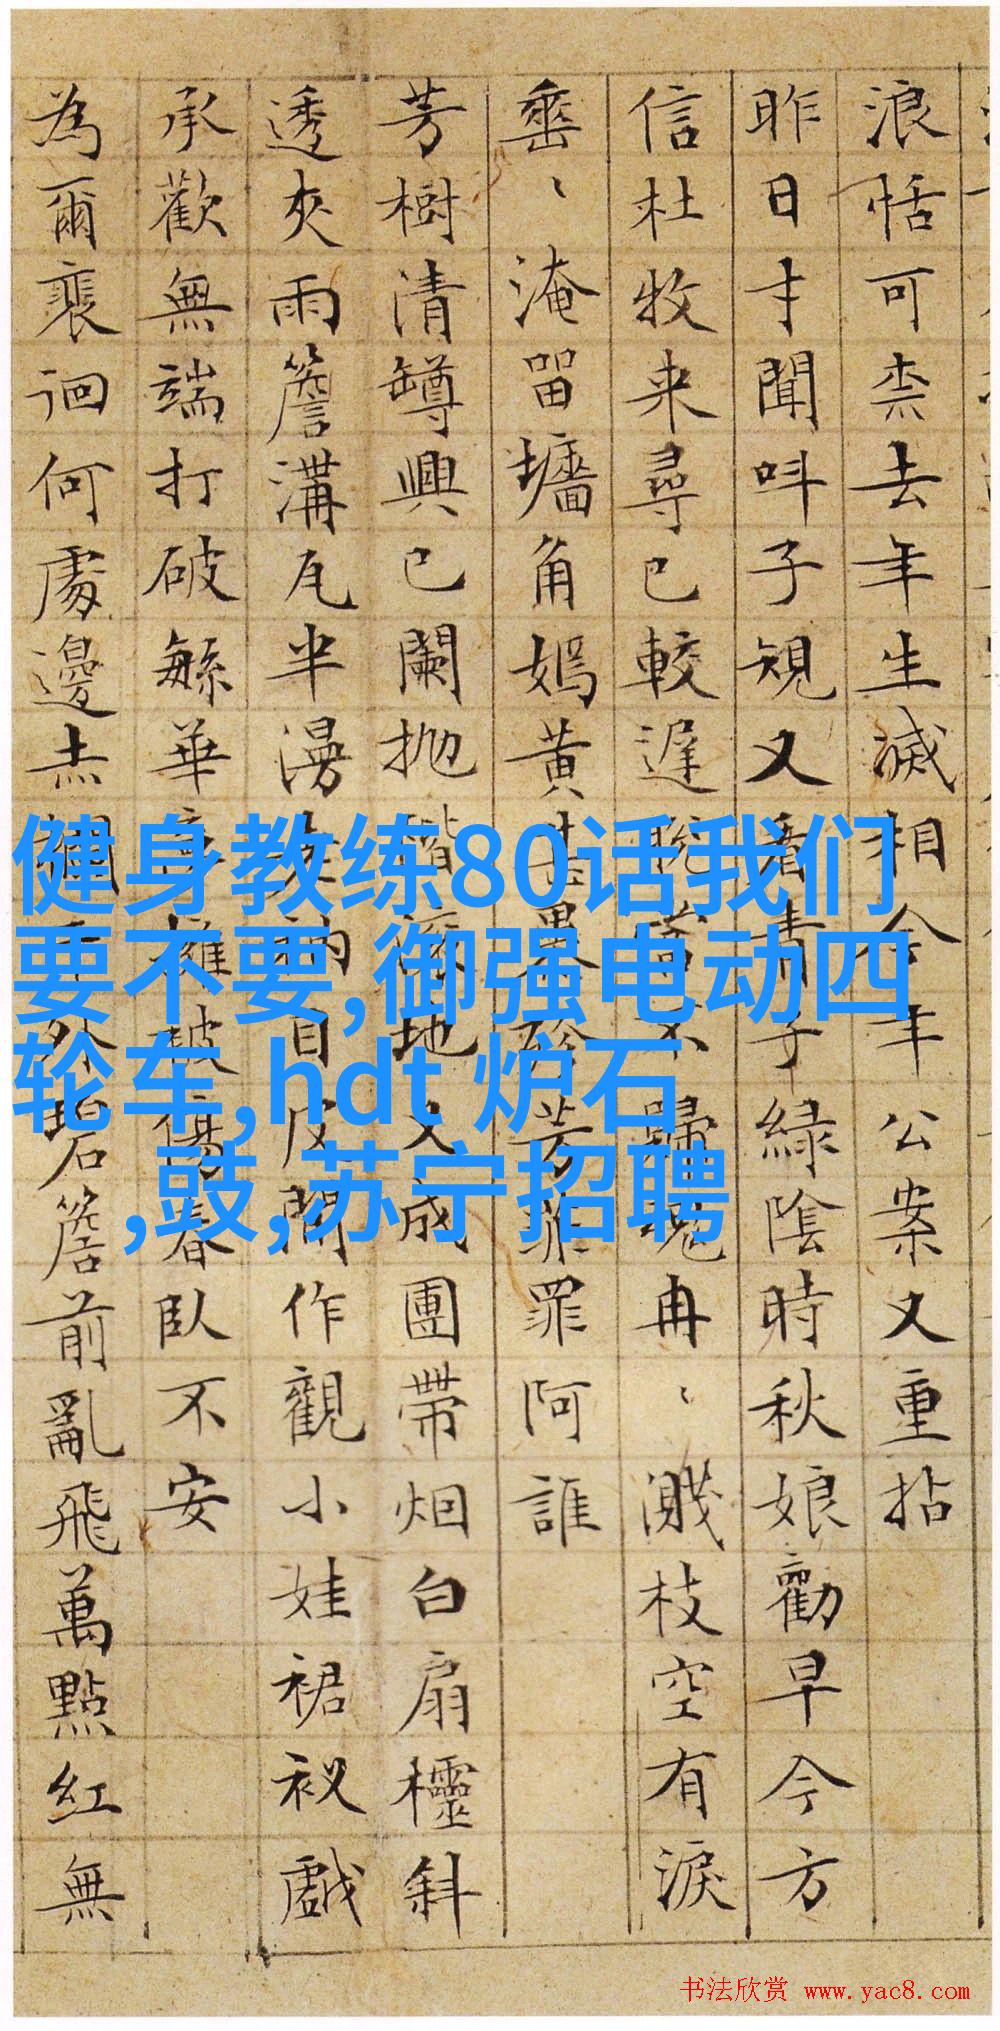 浪恬可柰去年生滅相今年公案又重拈
昨日才聞叫子規又看青子綠陰時秋娘勸早今方
信杜牧来尋已較遲
冉〻濺枝空有淚
〻淹留墻角嫣黄
芳罪阿誰
芳樹清罇興已闌抛堦
地又成團帶烟白扇欞斜
透夾雨簷溝瓦半漫
目反閒作觀小娃裙衩戲
承歡無端打破繁華
擁被傷春臥不安
為爾裵徊何處邊赤
外碧簷前亂飛萬點紅無
健身教练80话我们
要不要,御强电动四
轮车,hdt 炉石
,鼓,苏宁招聘
书法欣赏 www.yac8.com